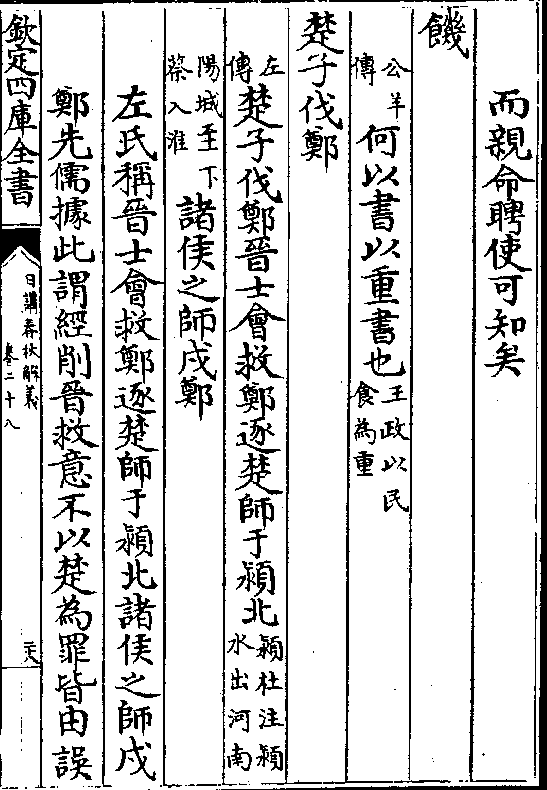 而親命聘使可知矣
饑
公羊傳何以書以重書也王政以民食為重
楚子伐鄭
左傳楚子伐鄭晉士會救鄭逐楚師于潁北潁杜注潁水出河南
陽城至下蔡入淮諸侯之師戍鄭
左氏稱晉士會救鄭逐楚師于潁北諸侯之師戍
鄭先儒據此謂經削晉救意不以楚為罪皆由誤
欽定四庫全書
日講春秋解義
卷二十八
二六